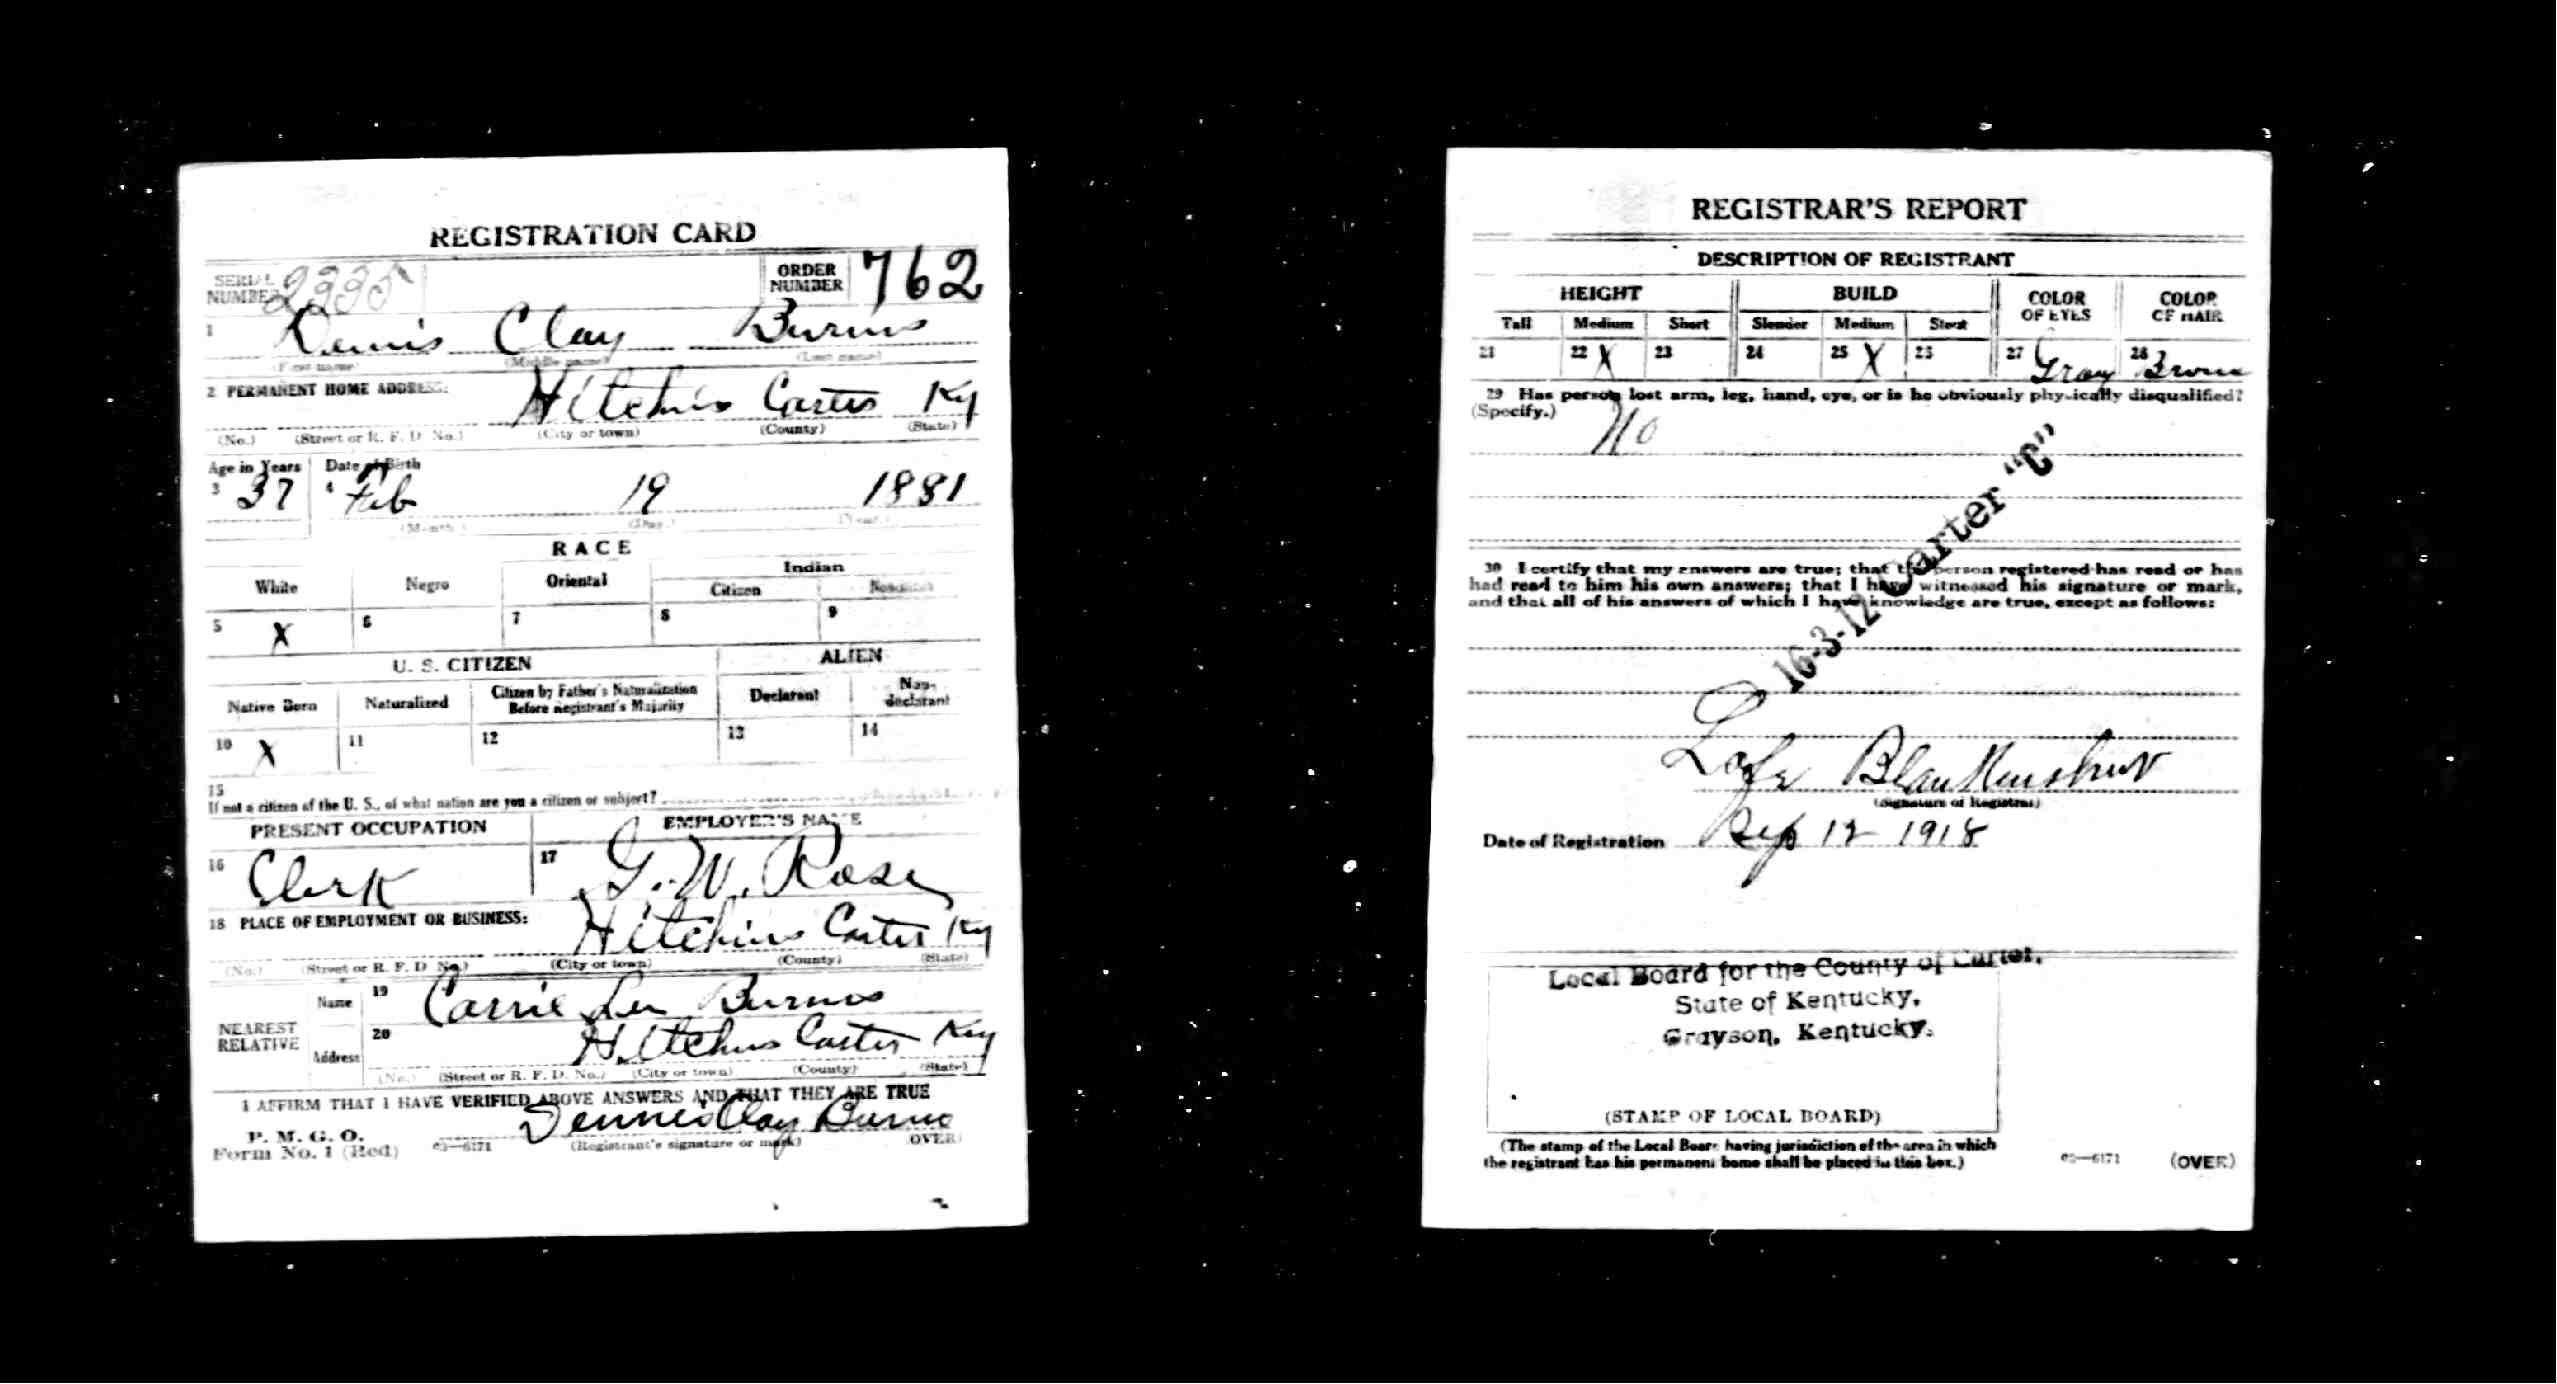 REGISTRATION CARD
SERIAL NUMBER 2335 ORDER NUMBER 762
1 Dennis Clay Burns
(First name) (Middle name) (Last name)
2 PERMANENT HOME ADDRESS: Hitchins Carter Ky
(No.) (Street or R. F. D. No.) (City or town) (County) (State)
Age in Years Date of Birth
3 37 4 Feb 19 1881
(Month.) (Day.) (Year.)
RACE
White Negro Oriental Indian
Citizen Noncitizen
5 X 6 7 8 9
U. S. CITIZEN ALIEN
Native Born Naturalized Citizen by Father's Naturalization Before Registrant's Majority Declarant Non-declarant
10 X 11 12 13 14
15
If not a citizen of the U. S., of what nation are you a citizen or subject?
PRESENT OCCUPATION EMPLOYER'S NAME
16 Clerk 17 G. W. Rose
18 PLACE OF EMPLOYMENT OR BUSINESS: Hitchins Carter Ky
(No.) (Street or R. F. D. No.) (City or town) (County) (State)
NEAREST RELATIVE Name 19 Carrie Lee Burns
Address 20 Hitchins Carter Ky
(No.) (Street or R. F. D. No.) (City or town) (County) (State)
I AFFIRM THAT I HAVE VERIFIED ABOVE ANSWERS AND THAT THEY ARE TRUE
P. M. G. O.
Form No. 1 (Red) 03—6171 Dennis Clay Burns
(Registrant's signature or mark) (OVER)
REGISTRAR'S REPORT
DESCRIPTION OF REGISTRANT
HEIGHT BUILD COLOR OF EYES COLOR OF HAIR
Tall Medium Short Slender Medium Stout
21 22 X 23 24 25 X 26 27 Gray 28 Brown
29 Has person lost arm, leg, hand, eye, or is he obviously physically disqualified?
(Specify.) No
30 I certify that my answers are true; that the person registered has read or has
had read to him his own answers; that I have witnessed his signature or mark,
and that all of his answers of which I have knowledge are true, except as follows:
16-3-12 Carter "C"
Blankenship
(Signature of Registrar)
Date of Registration Sep 12 1918
Local Board for the County of Carter,
State of Kentucky,
Grayson, Kentucky.
(STAMP OF LOCAL BOARD)
(The stamp of the Local Board having jurisdiction of the area in which
the registrant has his permanent home shall be placed in this box.)
03—6171 (OVER)